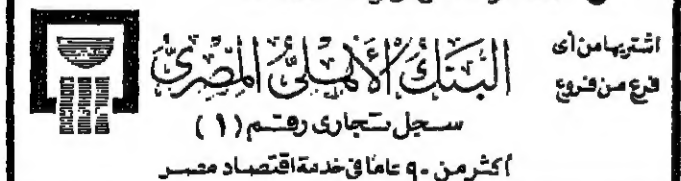 اشتريها من أى
فرع من فروع
البنك الأهلى المصرى
سجل تجارى رقم (١)
أكثر من ٩٠ عاما فى خدمة اقتصاد مصر